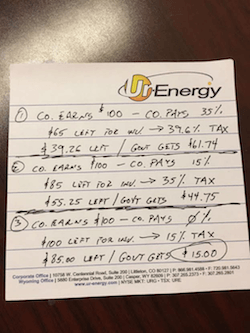 Ur-Energy
① CO. EARNS $100 - CO. PAYS 35%
$65 LEFT FOR INV. → 39.6% TAX
$39.26 LEFT / GOVT GETS $61.74
② CO. EARNS $100 - CO. PAYS 15%
$85 LEFT FOR INV. → 35% TAX
$55.25 LEFT / GOVT GETS $44.75
③ CO. EARNS $100 - CO. PAYS 0%
$100 LEFT FOR INV. → 15% TAX
$85.00 LEFT / GOVT GETS $15.00
Corporate Office | 10758 W. Centennial Road, Suite 200 | Littleton, CO 80127 | P: 866.981.4588 - F: 720.981.5643
Wyoming Office | 5880 Enterprise Drive, Suite 200 | Casper, WY 82609 | P: 307.265.2373 - F: 307.265.2801
www.ur-energy.com | NYSE MKT: URG • TSX: URE